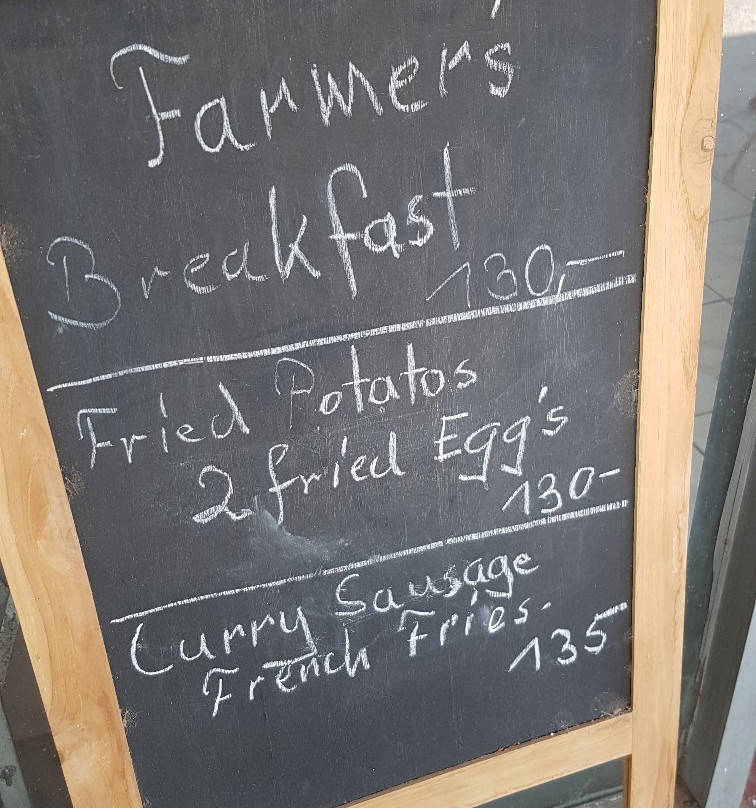 Farmer's
Breakfast
130,-
Fried Potatos
2 fried Egg's
130-
Curry Sausage
French Fries.
135